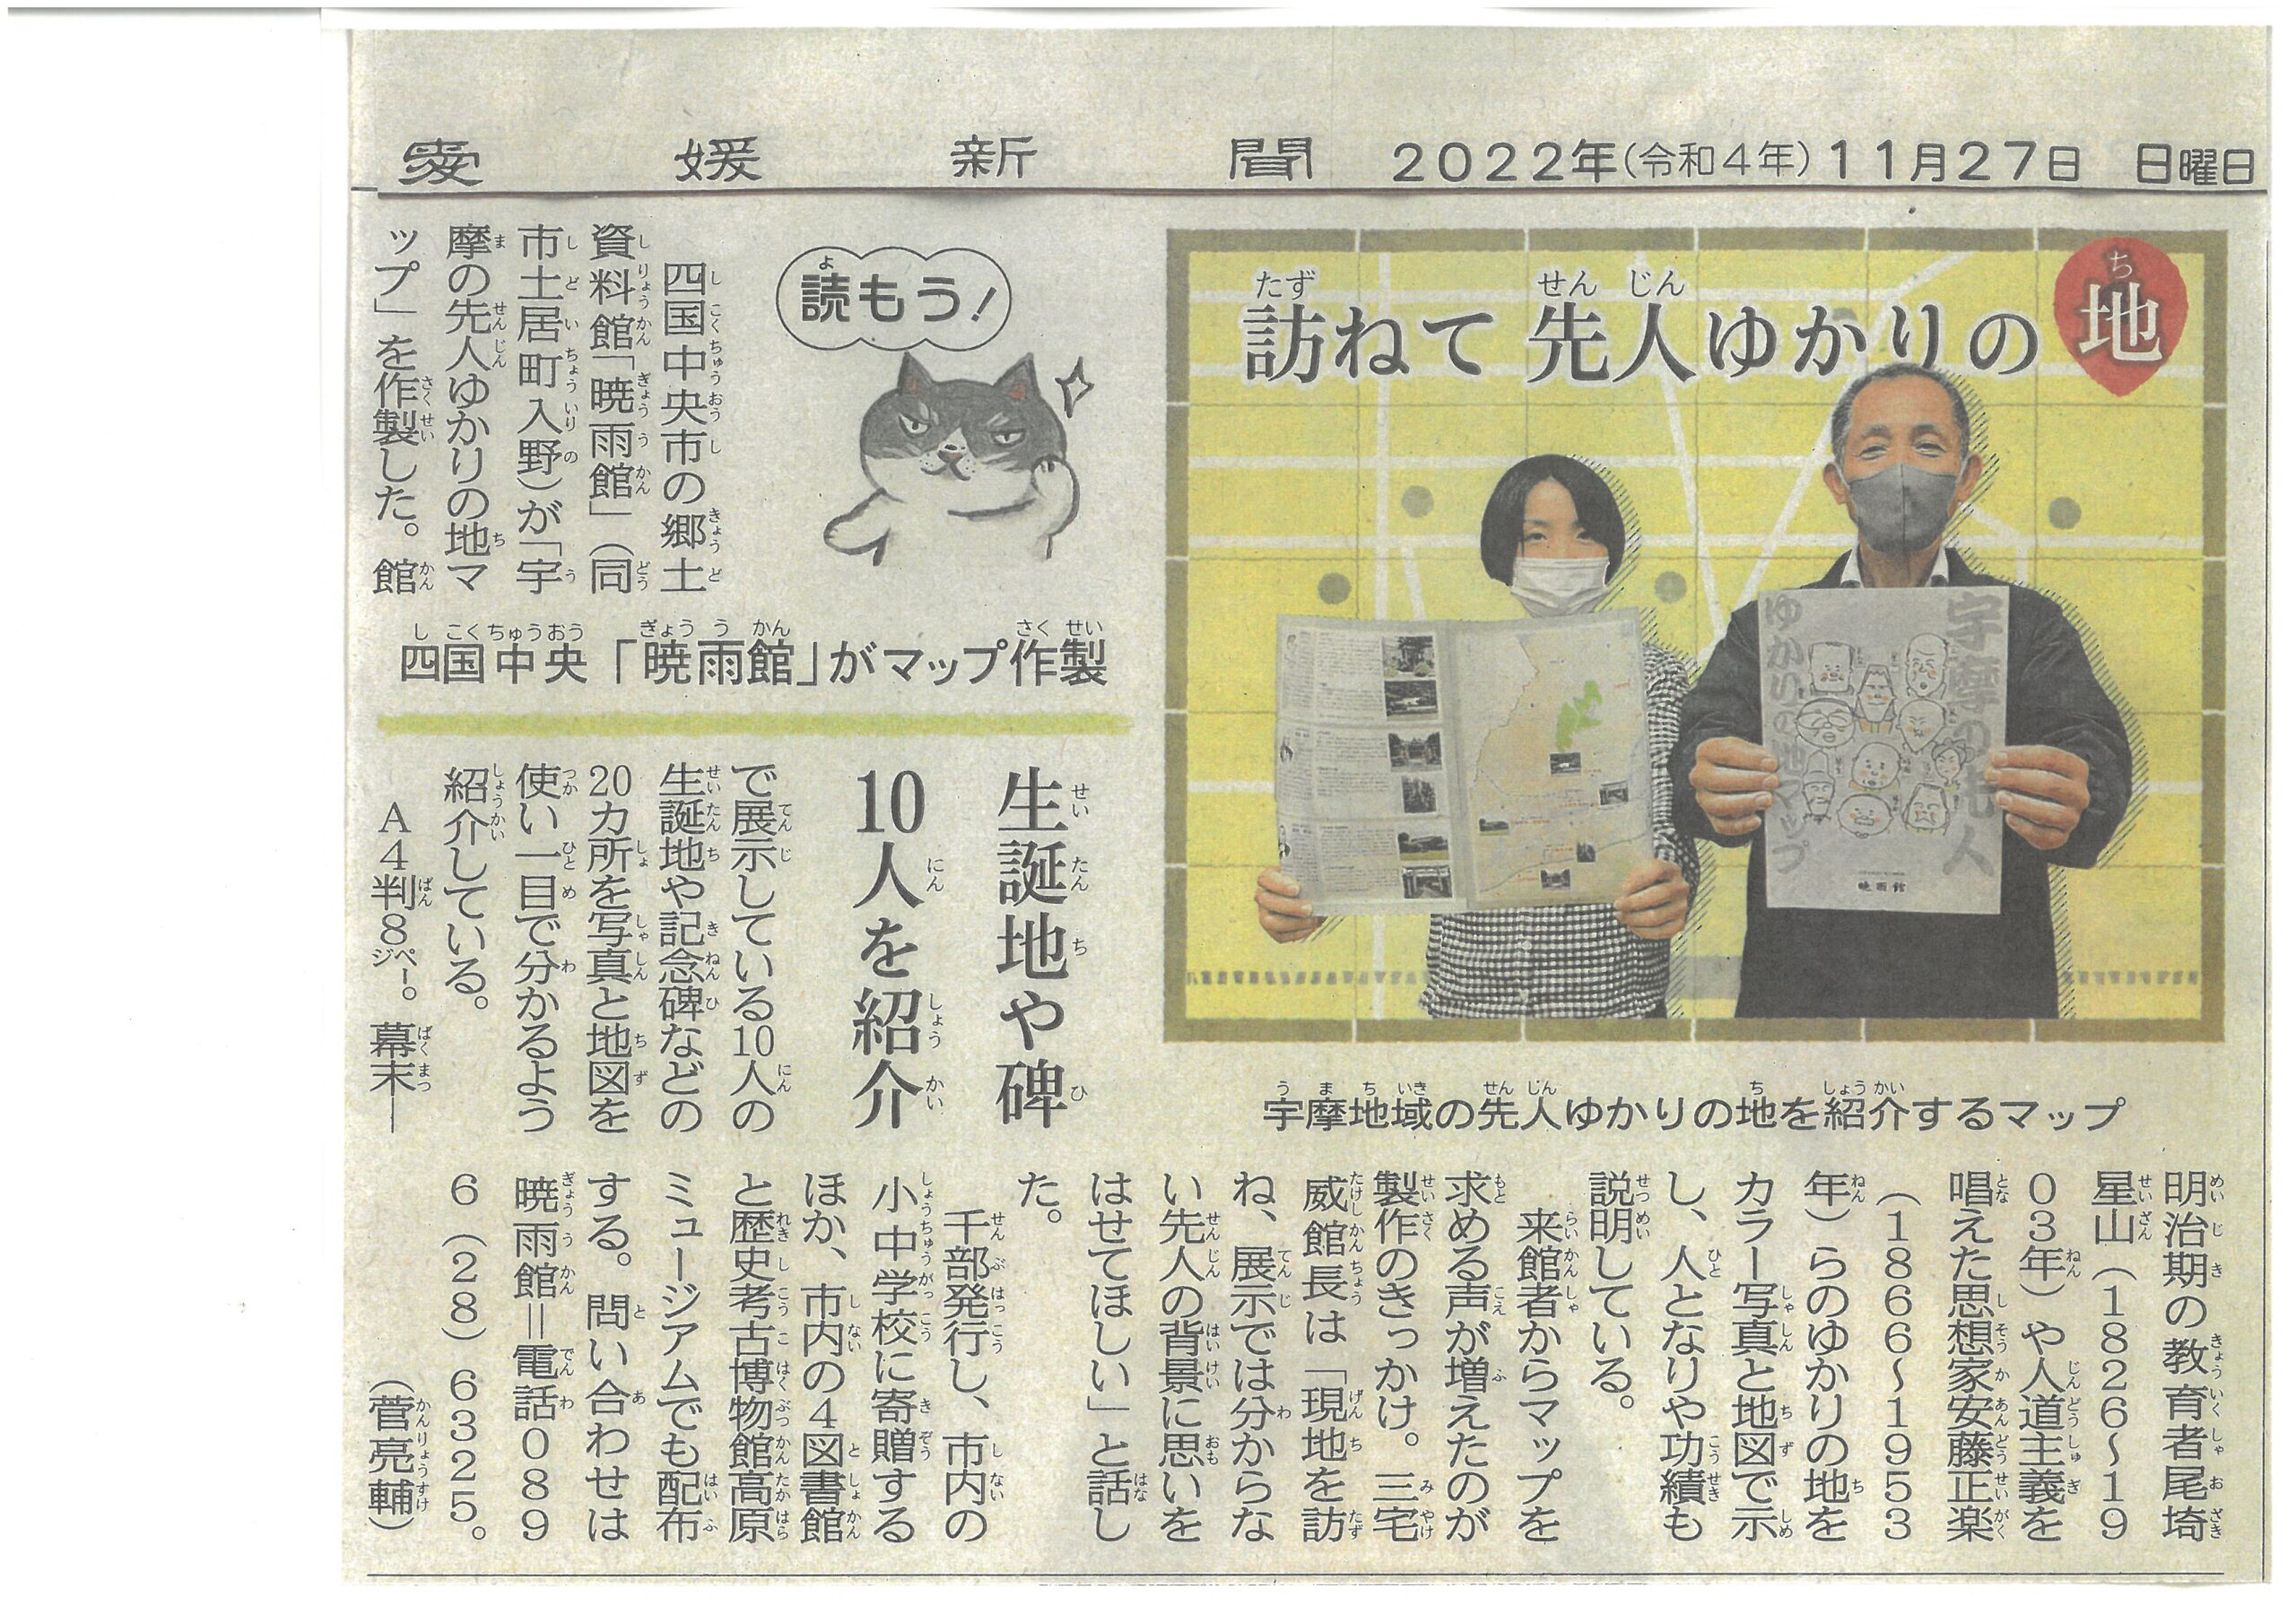 愛媛新聞 2022年(令和4年)11月27日 日曜日
訪ねて 先人ゆかりの地
読もう!
宇摩の先人
ゆかりの地マップ
暁雨館
宇摩地域の先人ゆかりの地を紹介するマップ
四国中央「暁雨館」がマップ作製
生誕地や碑
10人を紹介
四国中央市の郷土
資料館「暁雨館」(同
市土居町入野)が「宇
摩の先人ゆかりの地マ
ップ」を作製した。館
で展示している10人の
生誕地や記念碑などの
20カ所を写真と地図を
使い一目で分かるよう
紹介している。
A4判8ページ。幕末―
明治期の教育者尾埼
星山(1826~19
03年)や人道主義を
唱えた思想家安藤正楽
(1866~1953
年)らのゆかりの地を
カラー写真と地図で示
し、人となりや功績も
説明している。
来館者からマップを
求める声が増えたのが
製作のきっかけ。三宅
威館長は「現地を訪
ね、展示では分からな
い先人の背景に思いを
はせてほしい」と話し
た。
千部発行し、市内の
小中学校に寄贈する
ほか、市内の4図書館
と歴史考古博物館高原
ミュージアムでも配布
する。問い合わせは
暁雨館=電話089
6(28)6325。
(菅亮輔)